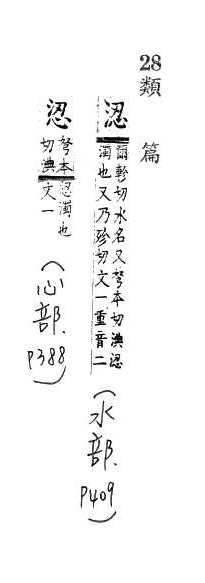 28
類篇
涊
爾軫切水名又弩本切淟涊
濁也又乃殄切文一重音二
(水部.
P409)
涊
弩本
切淟
涊濁也
文一
(心部.
P388)